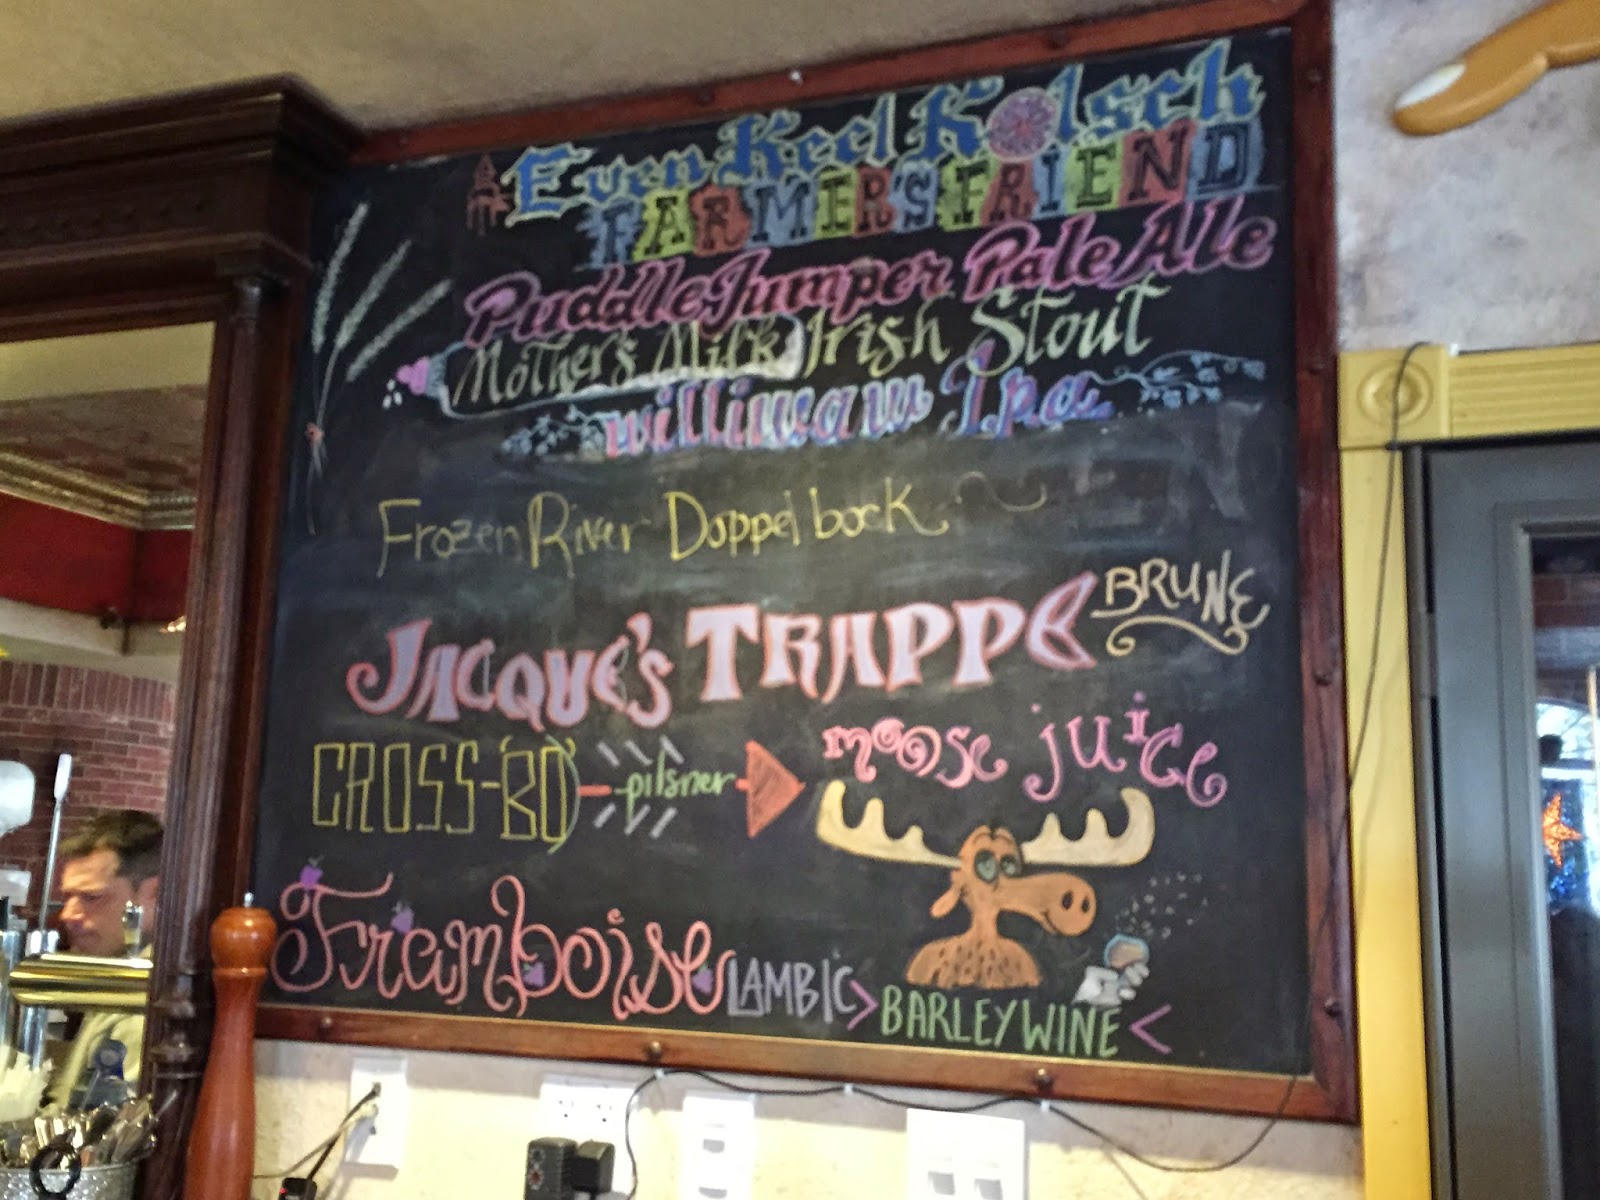 Even Keel Kolsch
FARMER'S FRIEND
Puddle Jumper Pale Ale
Mother's Milk Irish Stout
Williwaw Ipa
Frozen River Doppelbock
JACQUE'S TRAPPE BRUNE
CROSS-BO pilsner
moose juice
Framboise LAMBIC
> BARLEYWINE <